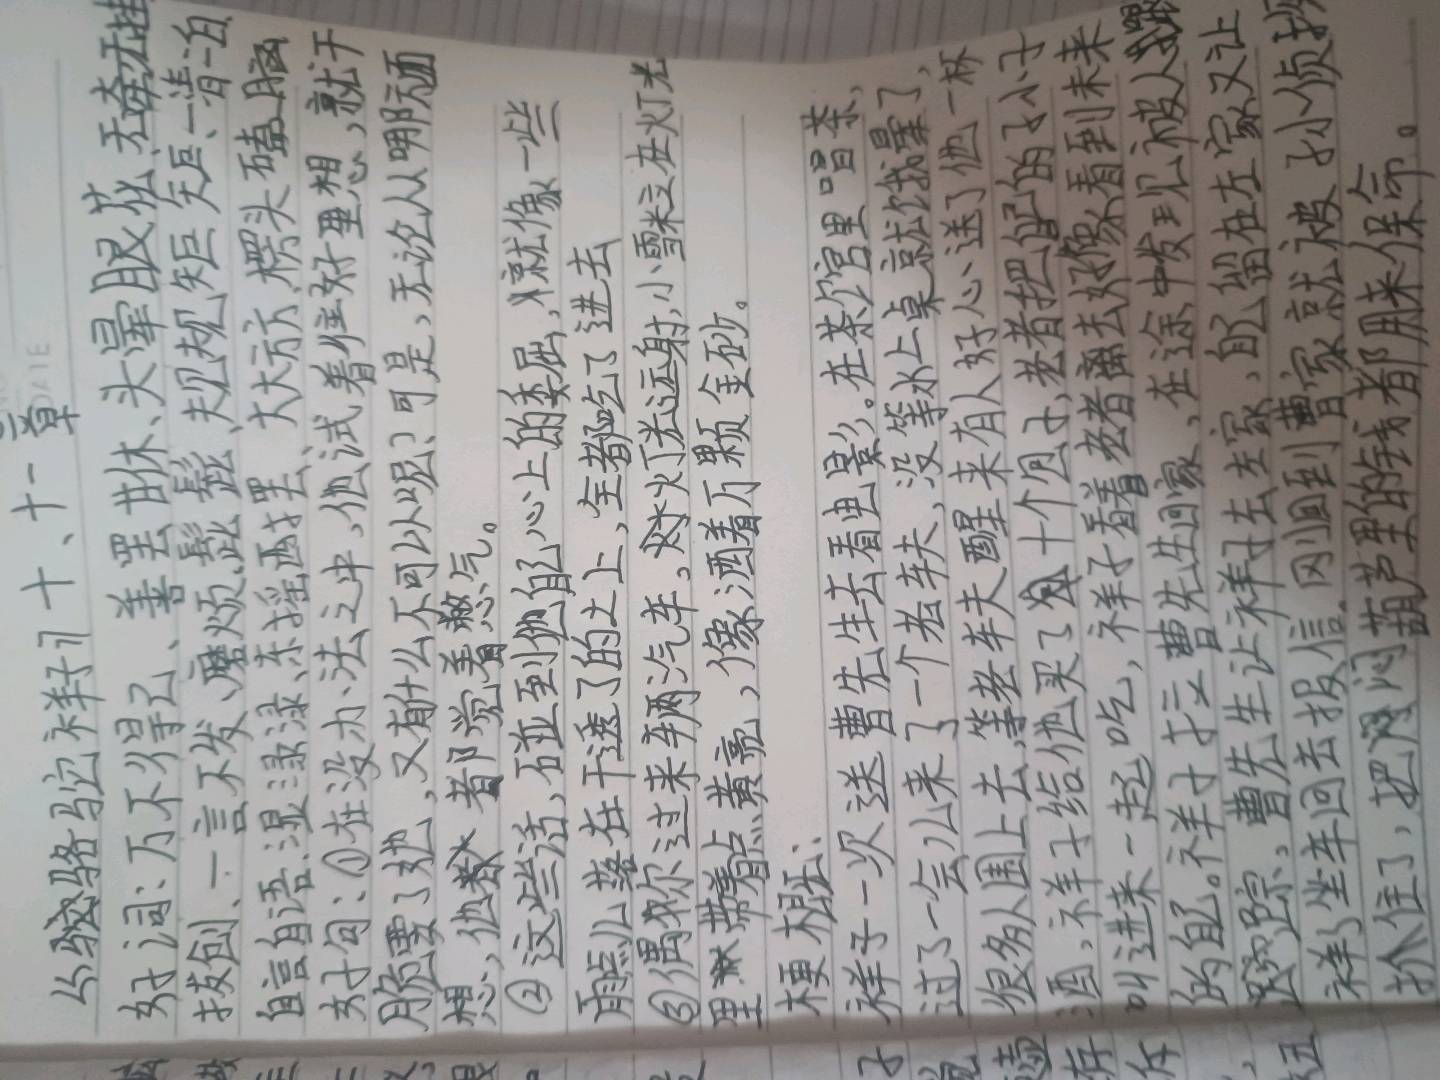 《骆驼祥子》十、十一章
好词:万不得已、善罢甘休、头晕眼花、无牵无挂
拔创、一言不发、磨烦、髭髭、规规矩矩、一清二白
自言自语、湿渌渌、东摇西摆、大大方方、楞头磕脑
好句:①在没办法之中,他试着往好里想,就干
脆要了她,又有什么不可以呢?可是,无论从哪方面
想,他都觉着憋气。
②这些话,碰到他自己心上的委屈,就像一些
雨点儿落在干透了的土上,全都吃了进去
③偶尔过来辆汽车,灯光远射,小雪粒在灯光
里带着点黄亮,像洒着万颗金砂。
梗概:
祥子一次送曹先生去看电影。在茶馆里喝茶,
过了一会儿来了一个老车夫,没等水上桌就饿晕了,
很多人围上去,等老车夫醒来有人好心送了他一杯
酒,祥子给他买了十个包子,老者把自己的孙子
叫进来一起吃,祥子看着老者离去好像看到未来
的自己。祥子拉曹先生回家,在途中发现被人跟
踪,曹先生让祥子去左家,自己留在左家又让
祥子坐车回去报信。刚回到曹家就被孙侦探
抓住了,把闷葫芦里的钱都用来保命。